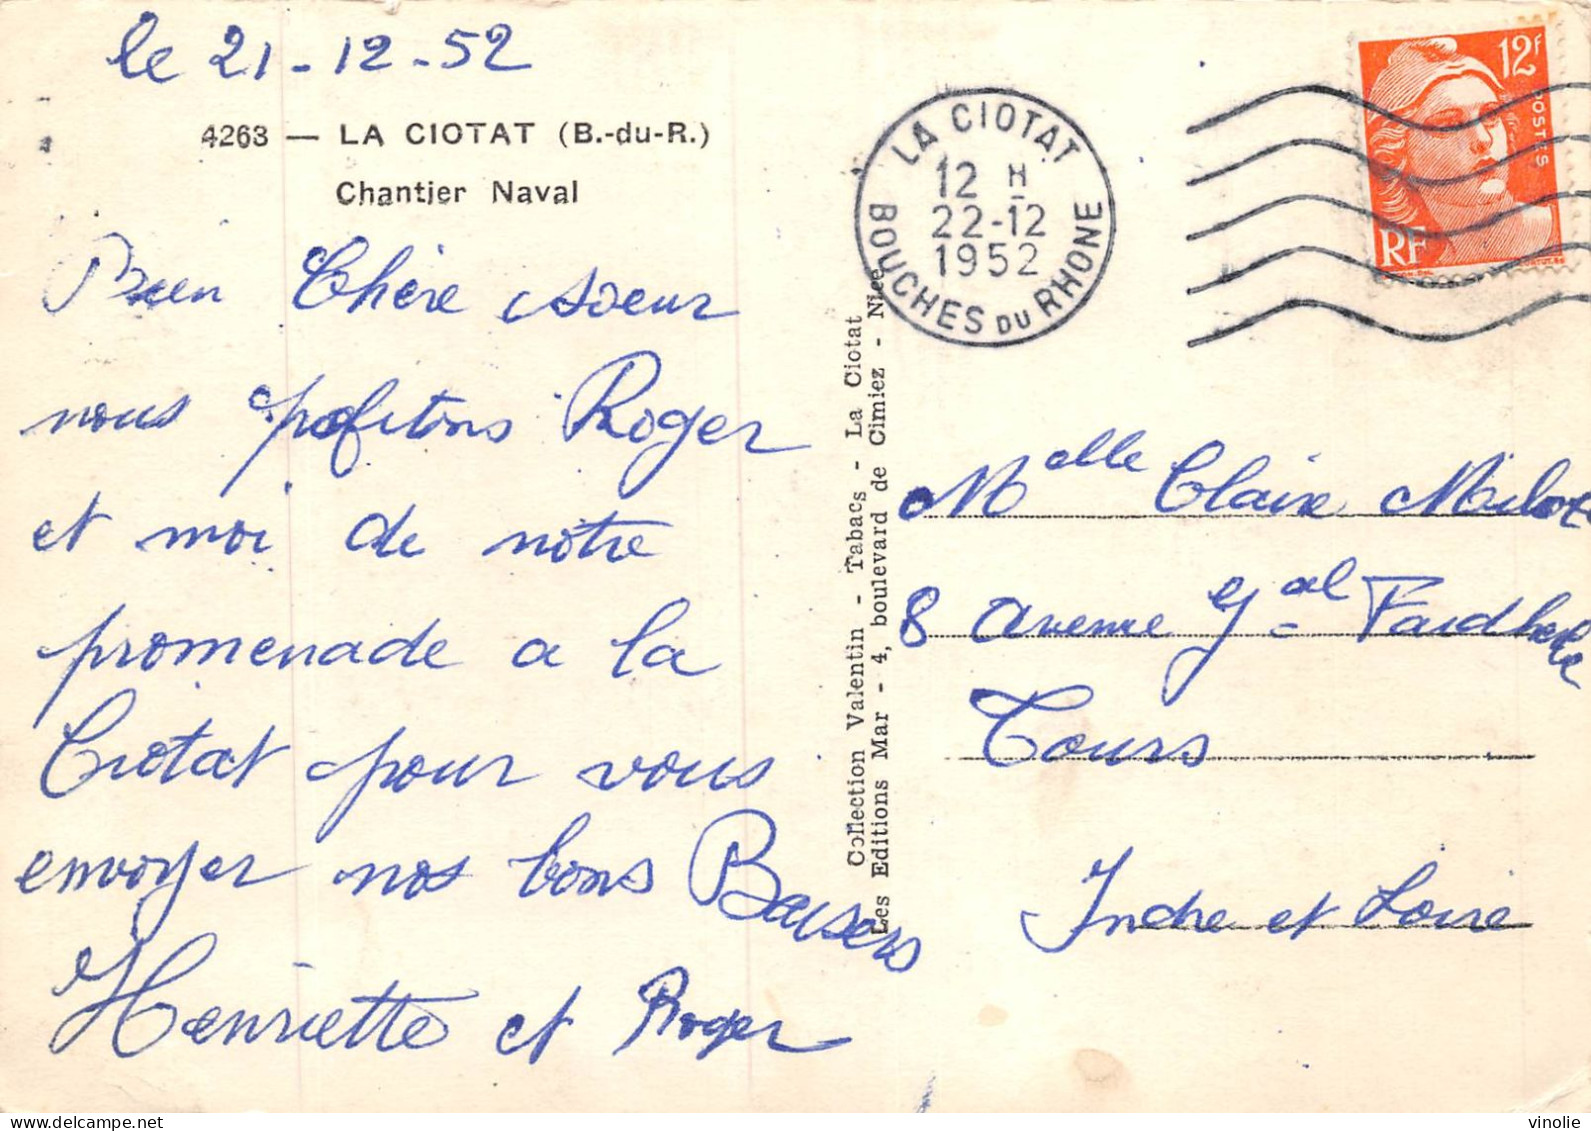 le 21-12-52
4263 — LA CIOTAT (B.-du-R.)
Chantier Naval
Bien Chère soeur
nous profitons Roger
et moi de notre
promenade a la
Ciotat pour vous
envoyer nos bons Baisers
Henriette et Roger
Collection Valentin - Tabacs - La Ciotat
Les Editions Mar - 4, boulevard de Cimiez - Nice
LA CIOTAT
12 H
22-12
1952
BOUCHES DU RHONE
12F
POSTES
RF
Melle Claire Milot
8 avenue Gal Faidherbe
Tours
Indre et Loire
vinolie